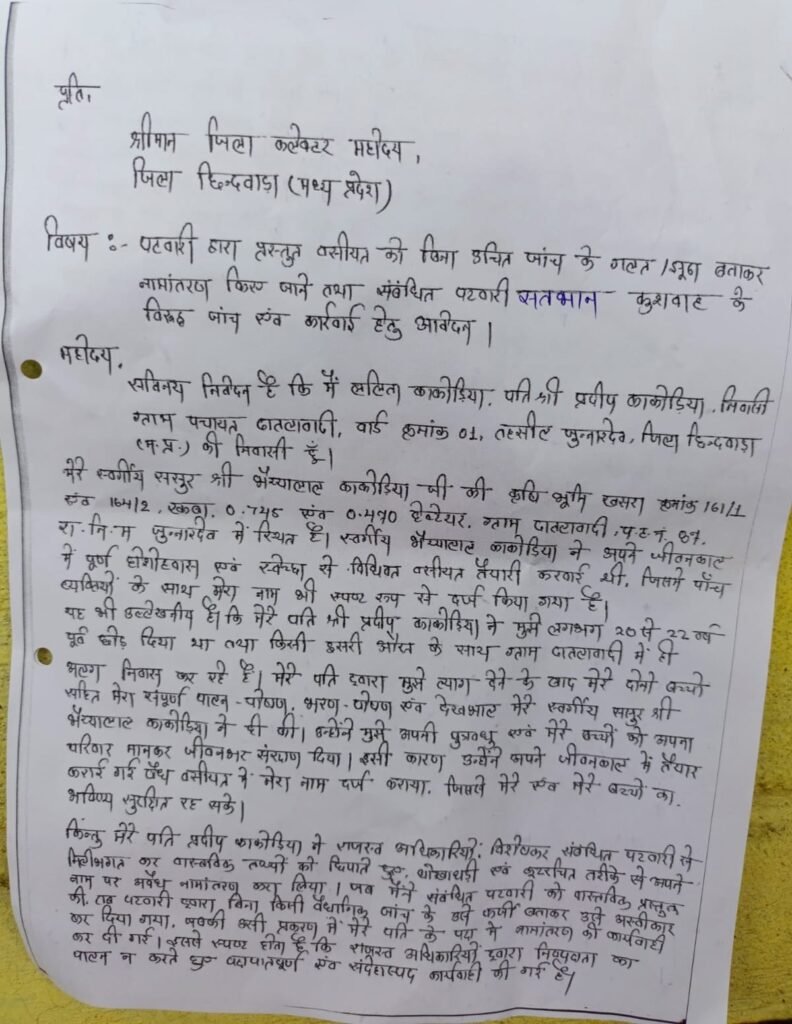 प्रति,
श्रीमान जिला कलेक्टर महोदय,
जिला छिन्दवाड़ा (मध्य प्रदेश)
विषय :- पटवारी द्वारा प्रस्तुत वसीयत को बिना उचित जांच के गलत/झूठा बताकर
नामांतरण किए जाने तथा संबंधित पटवारी सतभान कुशवाह के
विरूद्ध जांच एवं कार्रवाई हेतु आवेदन।
महोदय,
सविनय निवेदन है कि मैं ललिता काकोड़िया, पति श्री प्रदीप काकोड़िया, निवासी
ग्राम पंचायत दातलावादी, वार्ड क्रमांक 01, तहसील जुन्नारदेव, जिला छिन्दवाड़ा
(म.प्र.) की निवासी हूँ।
मेरे स्वर्गीय ससुर श्री भैय्यालाल काकोड़िया जी की कृषि भूमि खसरा क्रमांक 161/1
एवं 164/2, रकबा, 0.745 एवं 0.490 हेक्टेयर, ग्राम दातलावादी, प.ह.नं. 87,
रा.नि.म जुन्नारदेव में स्थित है। स्वर्गीय भैय्यालाल काकोड़िया ने अपने जीवनकाल
में पूर्ण होशोहवास एवं स्वेच्छा से विधिवत वसीयत तैयारी करवाई थी, जिसमे पाँच
व्यक्तियों के साथ मेरा नाम भी स्पष्ट रूप से दर्ज किया गया है।
यह भी उल्लेखनीय है। कि मेरे पति श्री प्रदीप काकोड़िया ने मुझे लगभग 20 से 22 वर्ष
पूर्व छोड़ दिया था तथा किसी दुसरी औरत के साथ ग्राम दातलावादी में ही
अलग निवास कर रहे है। मेरे पति द्वारा मुझे त्याग देने के बाद मेरे दोनो बच्चो
सहित मेरा संपूर्ण पालन-पोषण, भरण-पोषण एवं देखभाल मेरे स्वर्गीय ससुर श्री
भैय्यालाल काकोड़िया ने ही की। उन्होंने मुझे अपनी पुत्रवधू एवं मेरे बच्चों को अपना
परिवार मानकर जीवनभर संरक्षण दिया। इसी कारण उन्होंने अपने जीवनकाल में तैयार
कराई गई वैध वसीयत में मेरा नाम दर्ज कराया, जिससे मेरे एवं मेरे बच्चो का
भविष्य सुरक्षित रह सके।
किन्तु मेरे पति प्रदीप काकोड़िया ने राजस्व अधिकारियों, विशेषकर संबंधित पटवारी से
मिलीभगत कर वास्तविक तथ्यों को छिपाते हुए, धोखाधड़ी एवं कूटरचित तरीके से अपने
नाम पर अवैध नामांतरण करा लिया। जब मैंने संबंधित पटवारी को वास्तविक प्रस्तुत
की, तब पटवारी द्वारा, बिना किसी वैधानिक जांच के उसे फर्जी बताकर उसे अस्वीकार
कर दिया गया, जबकी उसी प्रकरण में मेरे पति के पक्ष में नामांतरण की कार्यवाही
कर दी गई। इससे स्पष्ट होता है कि राजस्व अधिकारियों द्वारा निष्पक्षता का
पालन न करते हुए पक्षपातपूर्ण एवं संदेहास्पद कार्यवाही की गई है।